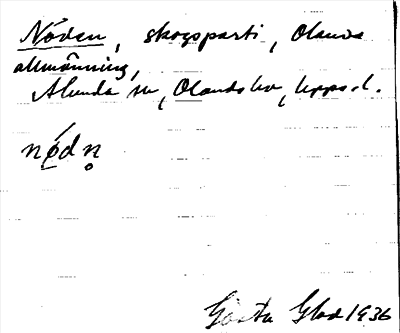 Nöden, skogsparti, Olands
allmänning,
Alunda sn, Olands hd, Upps. l.
nǿdn̥
Gösta Glad 1936